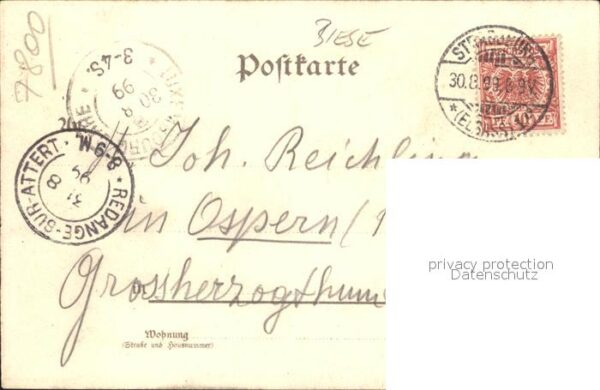 7800
BIESE
Postkarte
LUXEMBOURG GARE
3-4S.
30 8 99
STRASSBURG
30.8.99.8-9V.
(ELSASS)
REDANGE-SUR-ATTERT
8-9M.
31 8 99
Joh. Reichlin
in Ospern/
Grossherzogthum
privacy protection
Datenschutz
Wohnung
(Straße und Hausnummer)